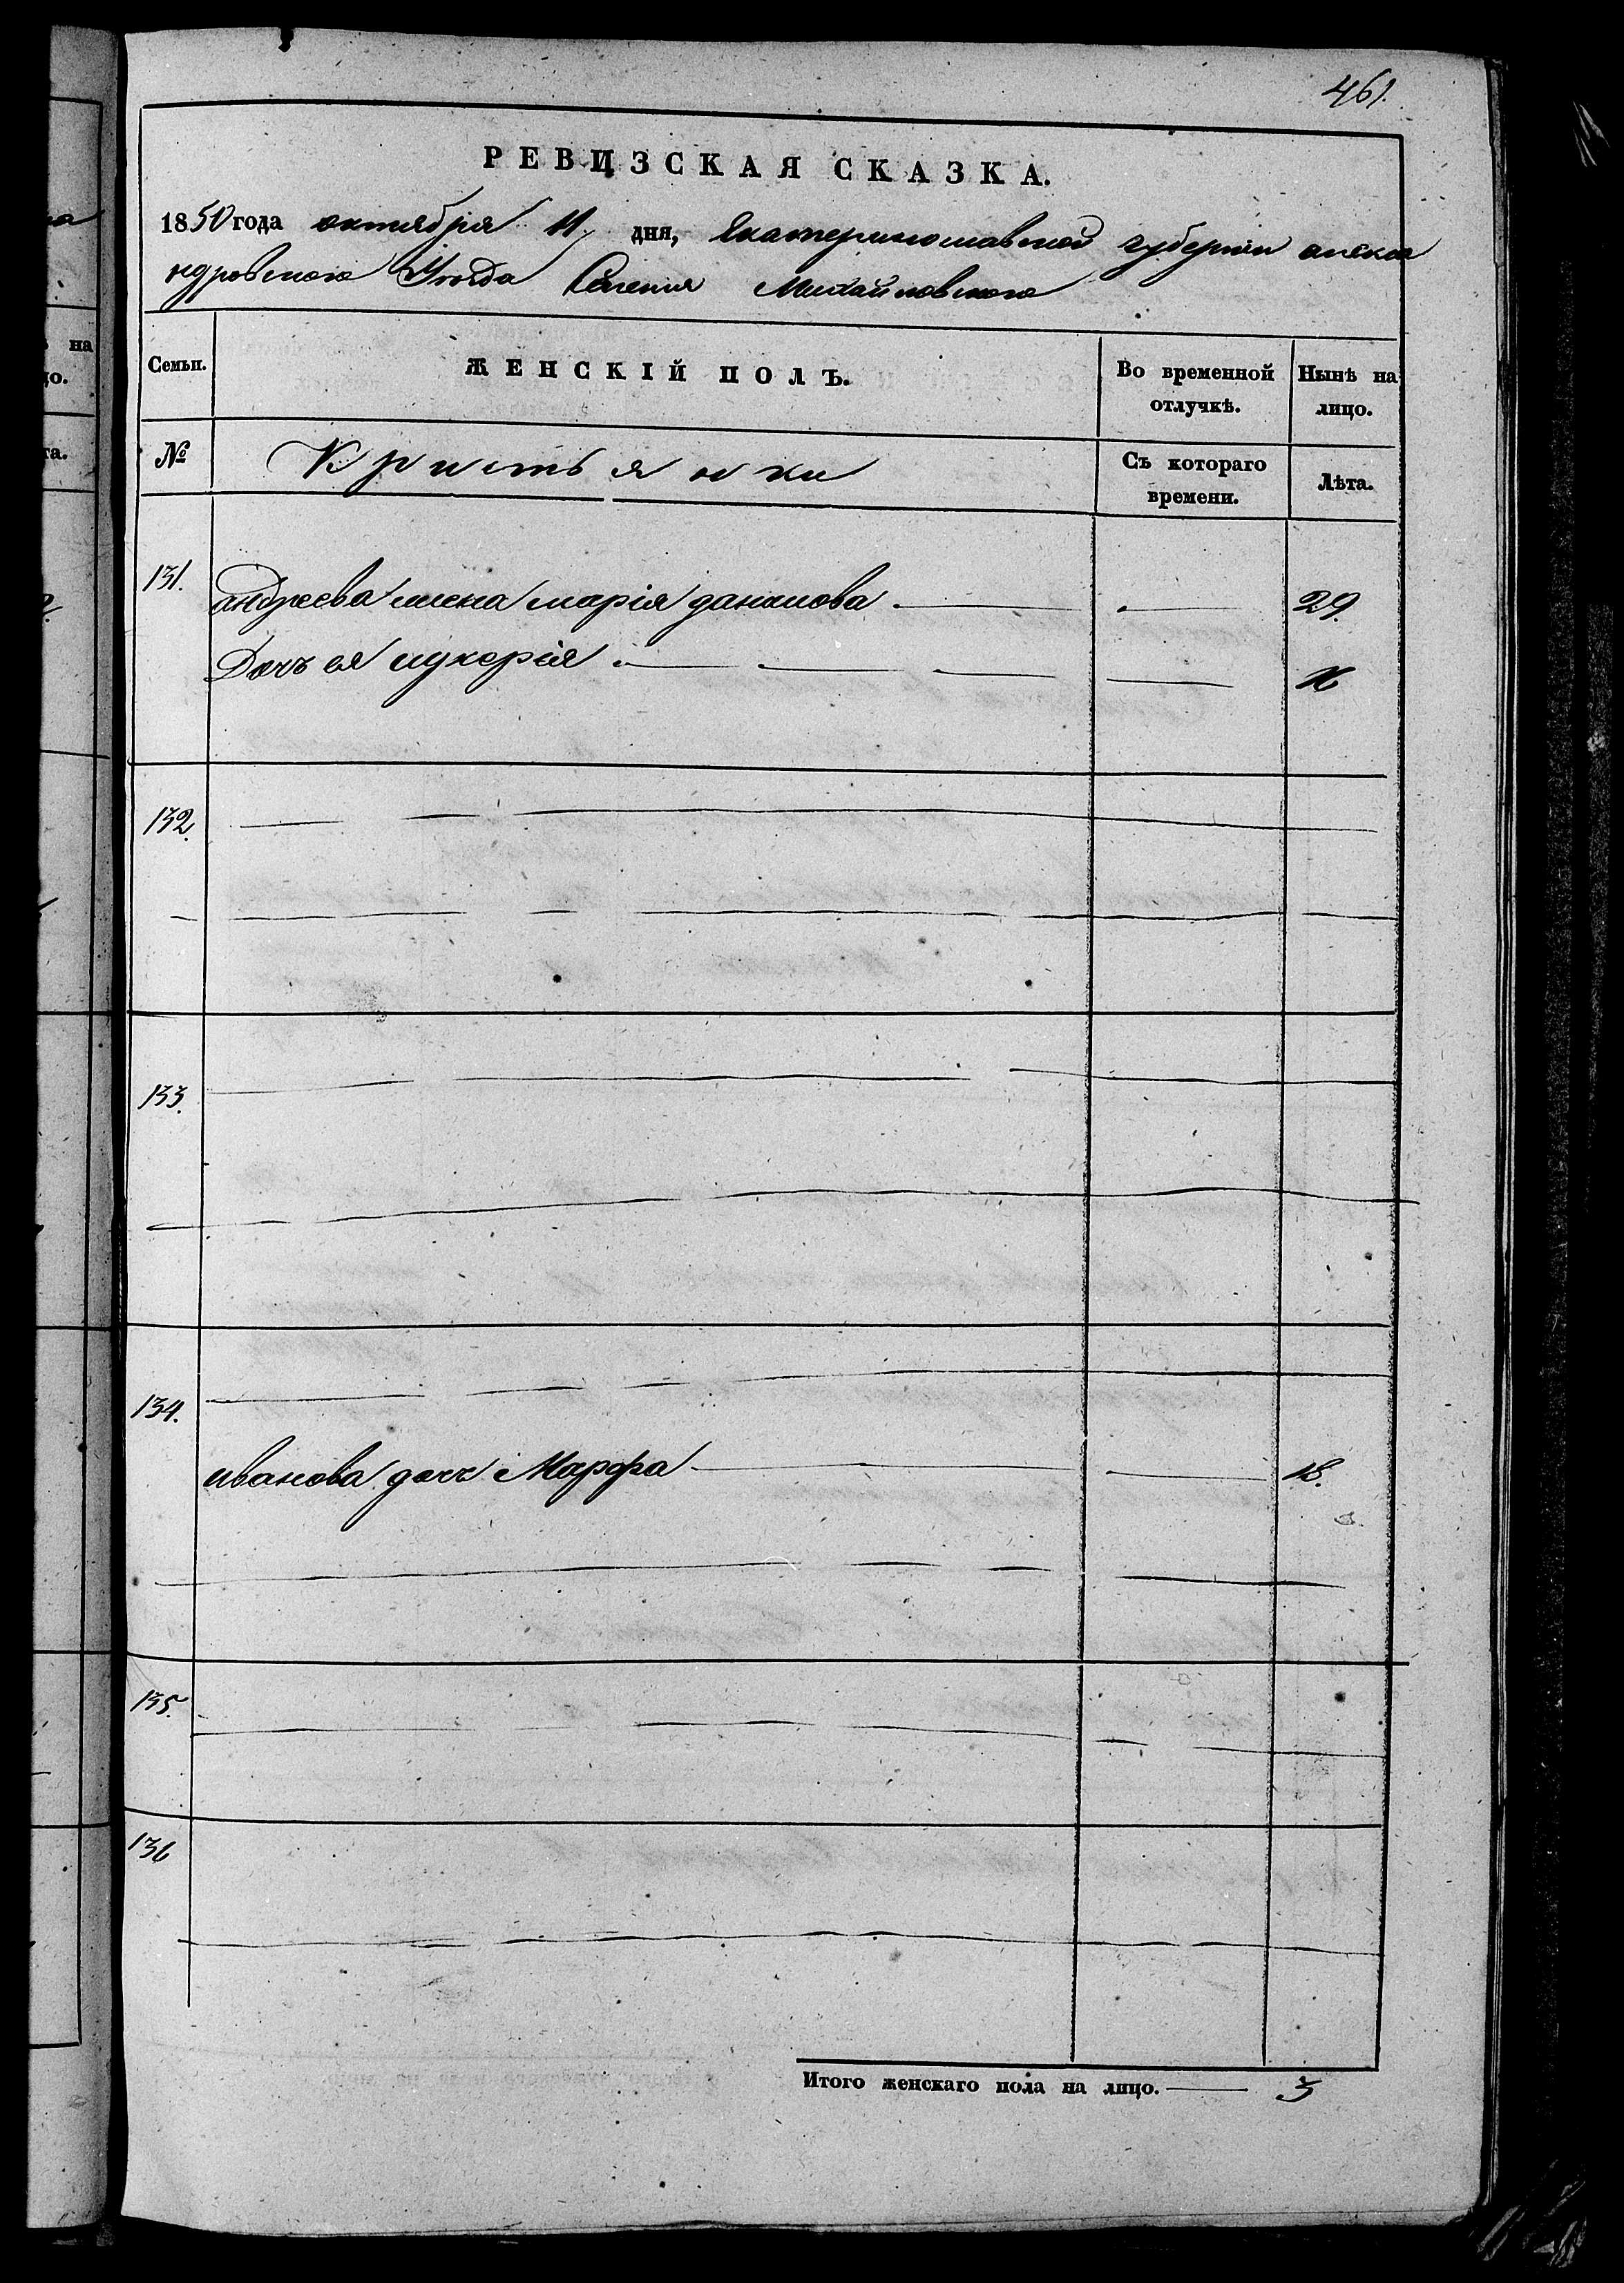 461.
РЕВИЗСКАЯ СКАЗКА.
1850 года октября 11 дня, Екатеринославской губернии алекса
ндровского Уѣзда Селения Михайловского
Семьи.
ЖЕНСКІЙ ПОЛЪ.
Во временной отлучкѣ.
Нынѣ на лицо.
№
Кристьянки
Съ котораго времени.
Лѣта.
131.
андреева жена марія данилова 29.
Дочь ея лукерія
132.
133.
134.
иванова дочь Марфа 18.
135.
136
Итого женскаго пола на лицо. 3
на
до.
та.